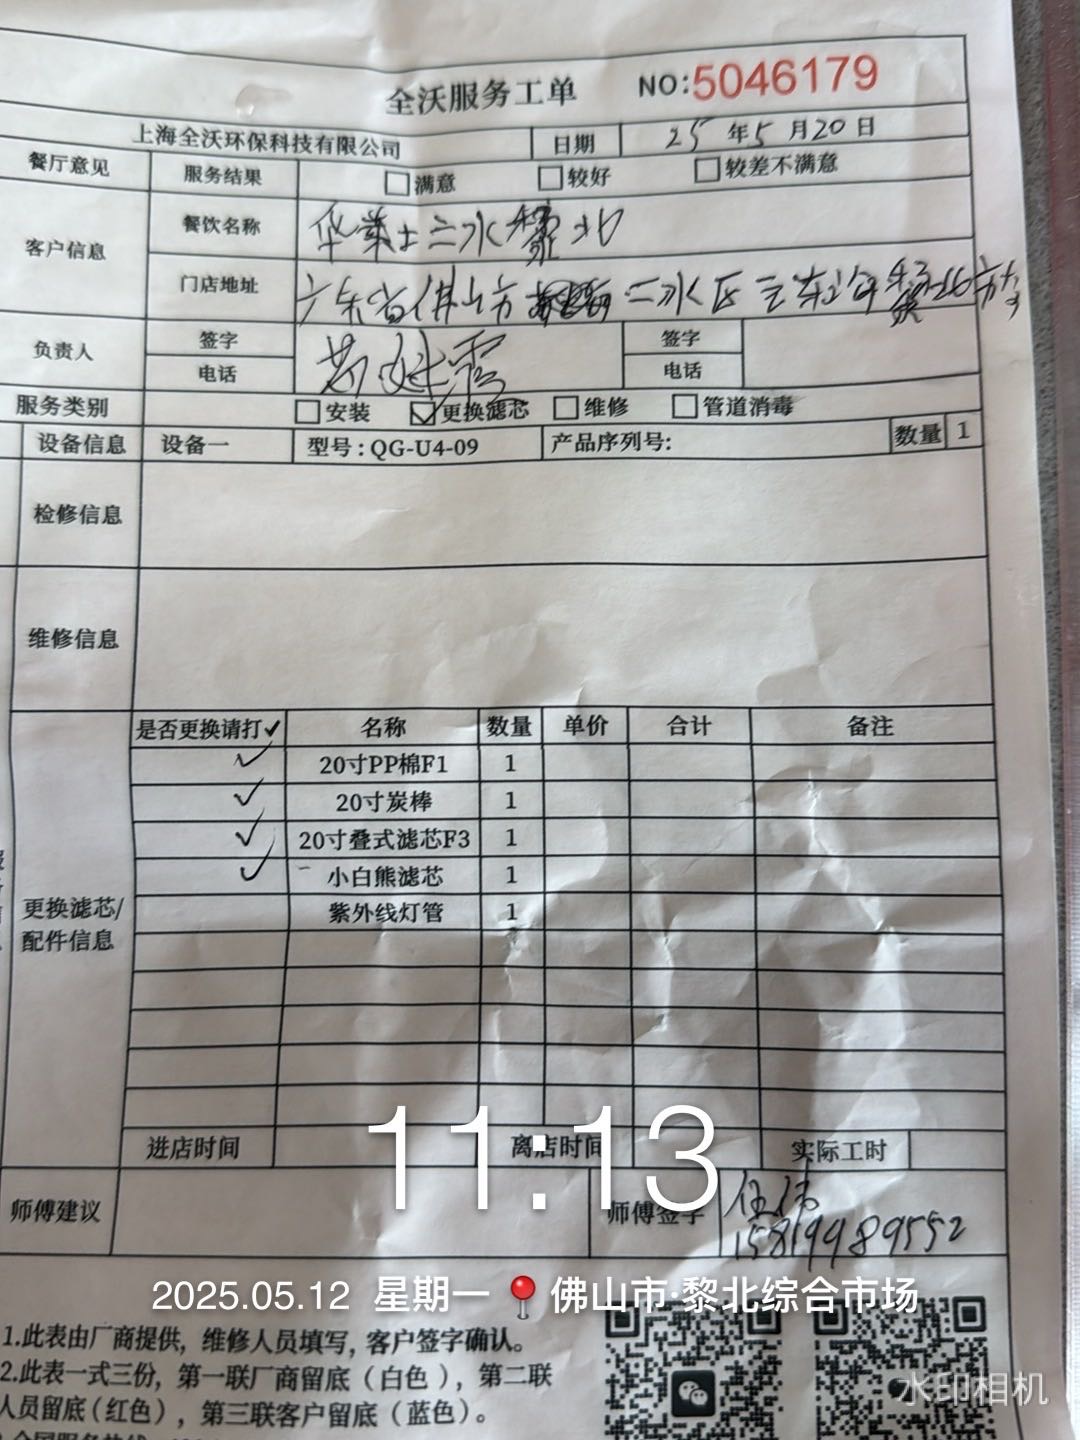 全沃服务工单 NO:5046179
上海全沃环保科技有限公司 日期 25年5月20日
餐厅意见 服务结果 满意 较好 较差不满意
客户信息 餐饮名称 华莱士三水黎北
门店地址 广东省佛山市 三水区云东海黎北市场
负责人 签字 签字
电话 电话
服务类别 安装 更换滤芯 维修 管道消毒
设备信息 设备一 型号:QG-U4-09 产品序列号: 数量 1
检修信息
维修信息
是否更换请打✓ 名称 数量 单价 合计 备注
✓ 20寸PP棉F1 1
✓ 20寸炭棒 1
✓ 20寸叠式滤芯F3 1
✓ 小白熊滤芯 1
紫外线灯管 1
更换滤芯/
配件信息
进店时间 离店时间 实际工时
11:13
师傅建议 师傅签字 伍伟
15819989552
2025.05.12 星期一 佛山市·黎北综合市场
1.此表由厂商提供,维修人员填写,客户签字确认。
2.此表一式三份,第一联厂商留底(白色),第二联
人员留底(红色),第三联客户留底(蓝色)。
水印相机